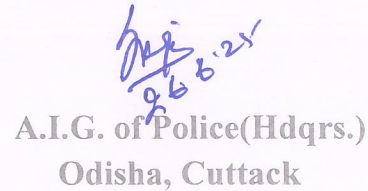 26.6.25
A.I.G. of Police(Hdqrs.)
Odisha, Cuttack